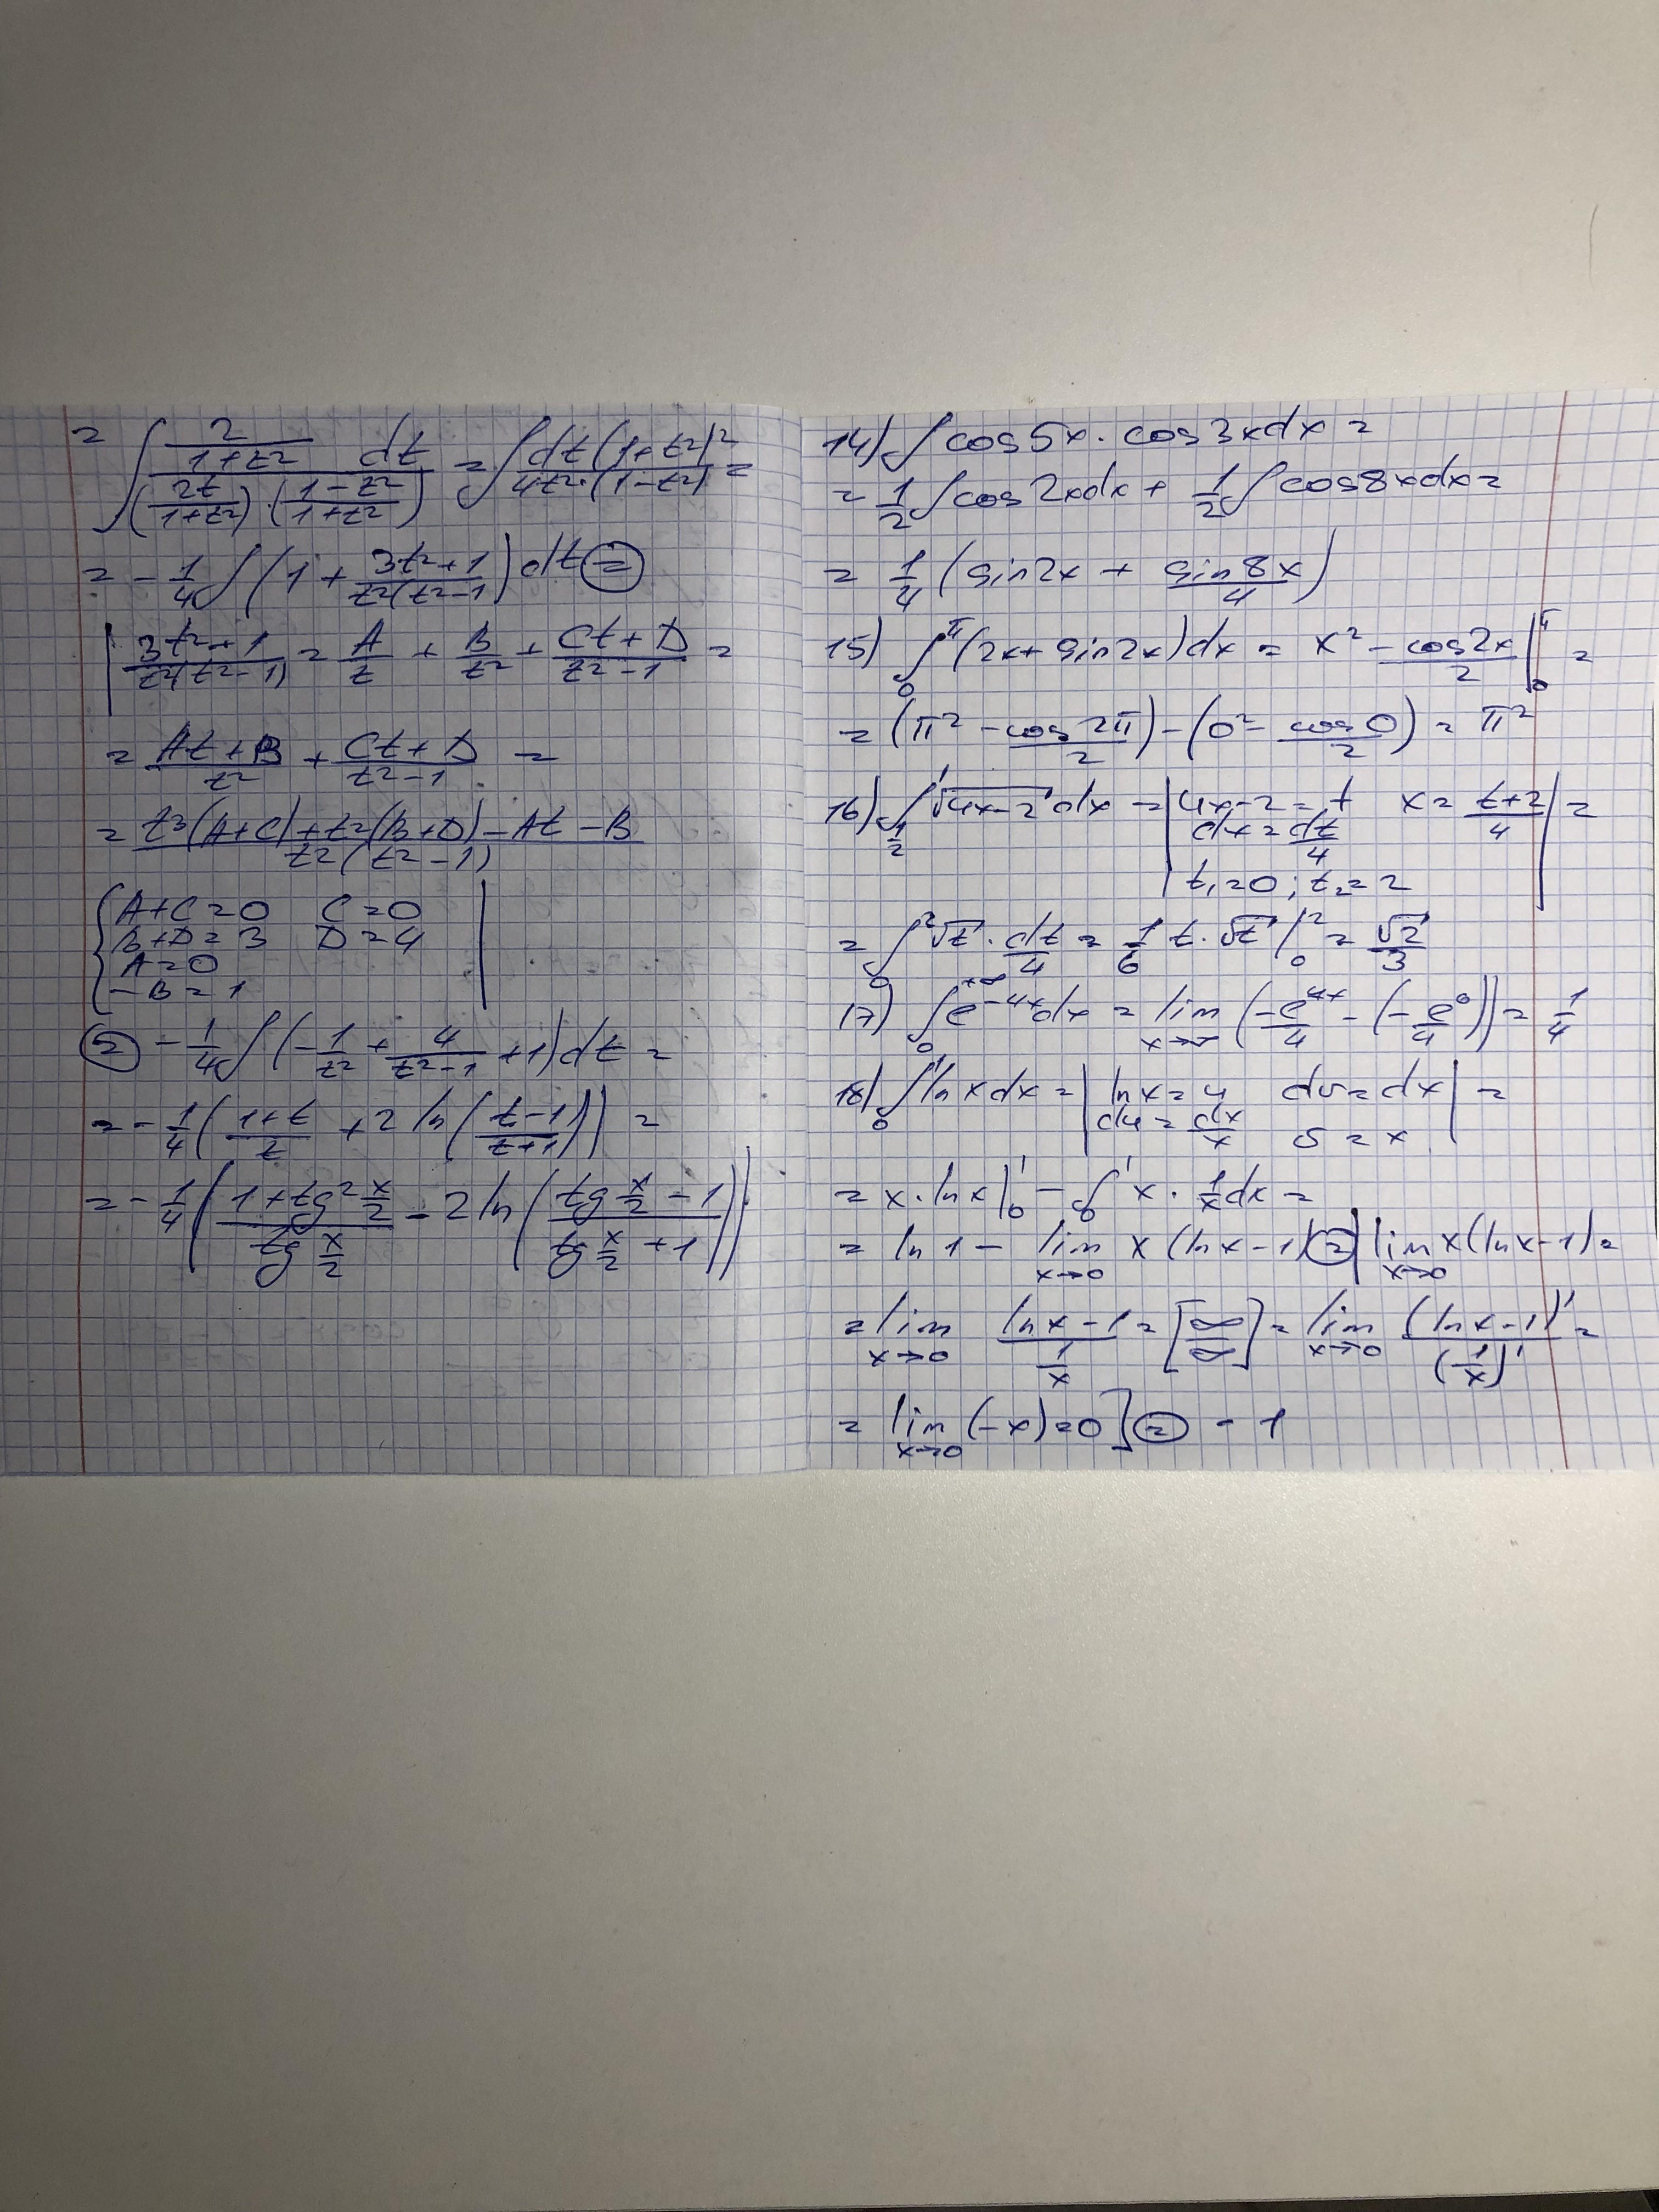 = ∫ (2/(1+t²) dt) / ((2t/(1+t²)) · ((1-t²)/(1+t²))) = ∫ dt(1+t²)² / (4t²·(1-t²)) =
= -1/4 ∫ (1 + (3t²+1)/(t²(t²-1))) dt ⊜
| (3t²+1)/(t²(t²-1)) = A/t + B/t² + (Ct+D)/(t²-1) =
= (At+B)/t² + (Ct+D)/(t²-1) =
= (t³(A+C)+t²(B+D)-At-B) / (t²(t²-1))
{ A+C=0 C=0 |
B+D=3 D=4
A=0
-B=1
⊜ -1/4 ∫ (-1/t² + 4/(t²-1) + 1) dt =
= -1/4 ((1+t)/t + 2 ln((t-1)/(t+1))) =
= -1/4 ((1+tg² x/2)/(tg x/2) - 2 ln((tg x/2 - 1)/(tg x/2 + 1)))
14) ∫ cos5x · cos3xdx =
= 1/2 ∫ cos2xdx + 1/2 ∫ cos8xdx =
= 1/4 (sin2x + sin8x/4)
15) ∫₀^π (2x+sin2x)dx = x² - cos2x/2 |₀^π =
= (π² - cos2π/2) - (0² - cos0/2) = π²
16) ∫_{1/2}^1 √(4x-2) dx = | 4x-2=t x = (t+2)/4 | =
dx = dt/4
t₁=0; t₂=2
= ∫₀² √t · dt/4 = 1/6 t·√t |₀² = √2/3
17) ∫₀^{+∞} e^{-4x}dx = lim_{x→∞} (-e^{4x}/4 - (-e⁰/4)) = 1/4
18) ∫₀¹ ln x dx = | ln x = u dv = dx | =
du = dx/x v = x
= x·ln x |₀¹ - ∫₀¹ x · 1/x dx =
= ln 1 - lim_{x→0} x(ln x-1) ⊜ | lim_{x→0} x(ln x-1) =
= lim_{x→0} (ln x-1)/(1/x) = [∞/∞] = lim_{x→0} (ln x-1)'/(1/x)' =
= lim_{x→0} (-x)=0] ⊜ -1